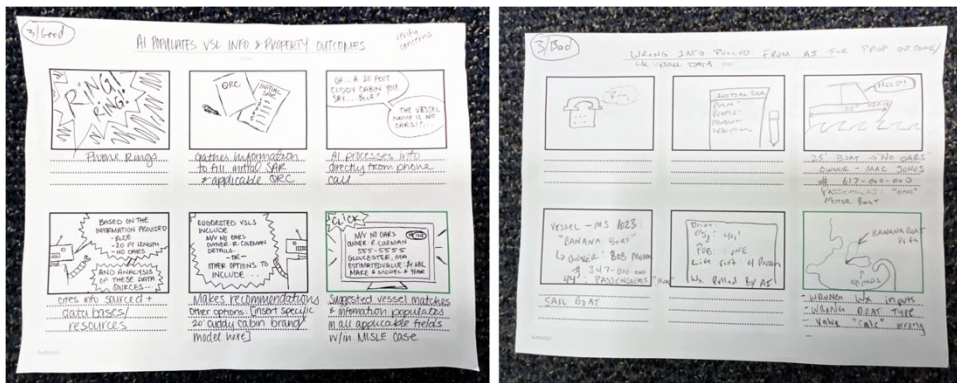 3/Good
AI POPULATES VSL INFO & PROPERTY OUTCOMES
verify
concerns
RING!
RING!
Phone Rings
QRC
INITIAL
SAR
Gathers information
to fill initial SAR
& applicable QRC
OH... A 20 FOOT
CUDDY CABIN YOU
SAY... BLUE?
THE VESSEL
NAME IS NO
OARS!?...
AI processes info
directly from phone
call
BASED ON THE
INFORMATION PROVIDED
-BLUE
-20 FT LENGTH
-NO OARS
AND ANALYSIS
OF THESE DATA
SOURCES...
cites info sourced +
data bases/
resources
SUGGESTED VSLS
INCLUDE
M/V NO OARS
OWNER: R. COLEMAN
DETAILS...
-OR-
OTHER OPTIONS TO
INCLUDE...
Makes recommendations
Other options: [insert specific
20' cuddy cabin brand/
model here]
CLICK!
M/V NO OARS
OWNER: R COLEMAN
555-5555
GLOUCESTER, MA
ESTIMATED VALUE:
MAKE & MODEL & YEAR
Suggested vessel matches
& information populates
in all applicable fields
w/in MISLE case
3/Bad
WRONG INFO PULLED FROM AI FOR PROP OUTCOME/
VESSEL DATA
INITIAL SAR
HELP!!
25' BOAT "NO OARS"
OWNER - MAC JONES
# 617-000-000
PASSENGERS: "ONE"
MOTOR BOAT
VESSEL - MS 1023
"BANANA BOAT"
OWNER: BOB
# 347-000-000
44' PASSENGERS
SAIL BOAT
POB: ONE
Wx Pulled By AI
BANANA BOAT
NO OARS
WRONG WX INPUTS
WRONG BOAT TYPE
VALUE "CALC" WRONG